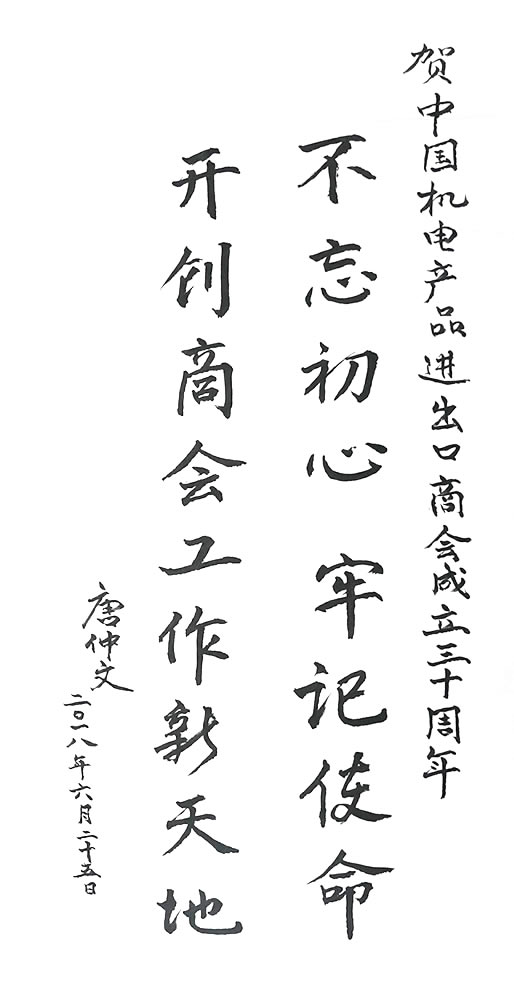 贺中国机电产品进出口商会成立三十周年
不忘初心 牢记使命
开创商会工作新天地
唐仲文
二〇一八年六月二十五日